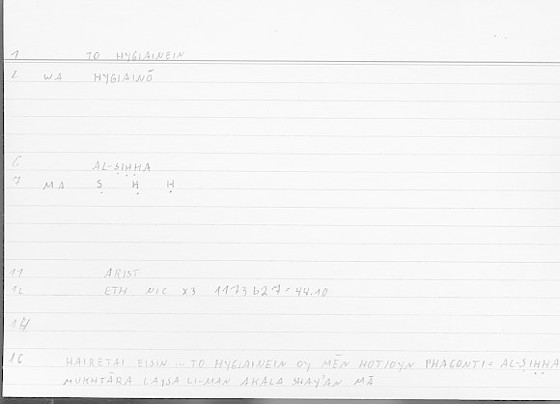 1 TO HYGIAINEIN
2 WA HYGIAINŌ
6 AL-ṢIḤḤA
7 MA Ṣ Ḥ Ḥ
11 ARIST
12 ETH NIC X3 1173 b27 = 44.10
14
16 HAIRETAI EISIN ... TO HYGIAINEIN OY MĒN HOTIOYN PHAGONTI = AL-ṢIḤḤA
MUKHTĀRA LAYSA LI-MAN AKALA SHAY'AN MĀ